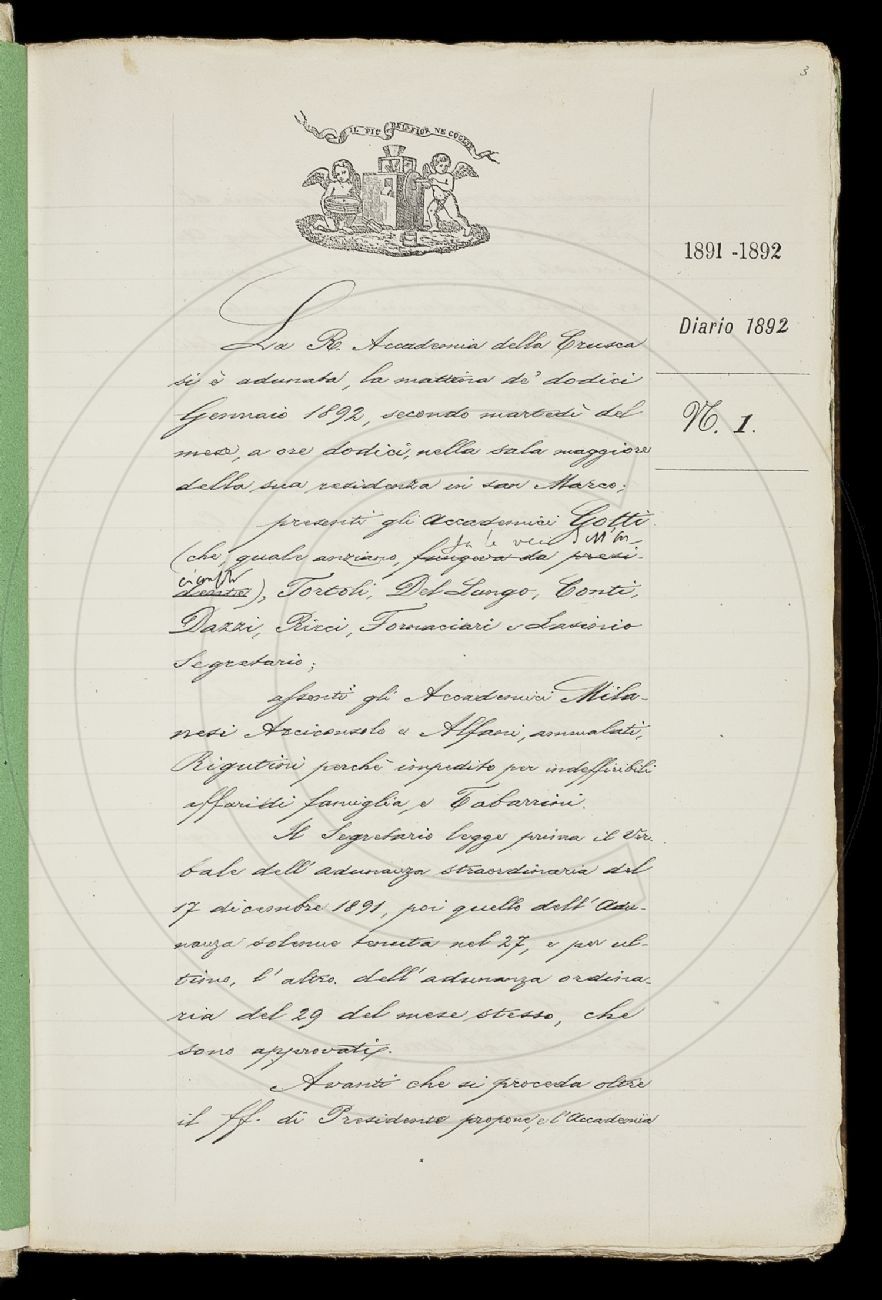 3
IL PIÙ BEL FIOR NE COGLIE
1891 - 1892
Diario 1892
N. 1.
La R. Accademia della Crusca
si è adunata, la mattina de' dodici
Gennaio 1892, secondo martedì del
mese, a ore dodici, nella sala maggiore
della sua residenza in san Marco;
presenti gli Accademici Gotti
fa le veci dell'Ar-
(che, quale anziano, fungeva da presi-
ciconsolo
dente), Tortoli, Del Lungo, Conti,
Dazzi, Ricci, Fornaciari e Lasinio
Segretario;
assenti gli Accademici Mila-
nesi Arciconsolo e Alfani, ammalati,
Rigutini perchè impedito per indefferibili
affari di famiglia, e Tabarrini.
Il Segretario legge prima il Ver-
bale dell'adunanza straordinaria del
17 dicembre 1891, poi quello dell'Adu-
nanza solenne tenuta nel 27, e per ul-
timo, l'altro dell'adunanza ordina-
ria del 29 del mese stesso, che
sono approvati.
Avanti che si proceda oltre
il ff. di Presidente propone, e l'Accademia